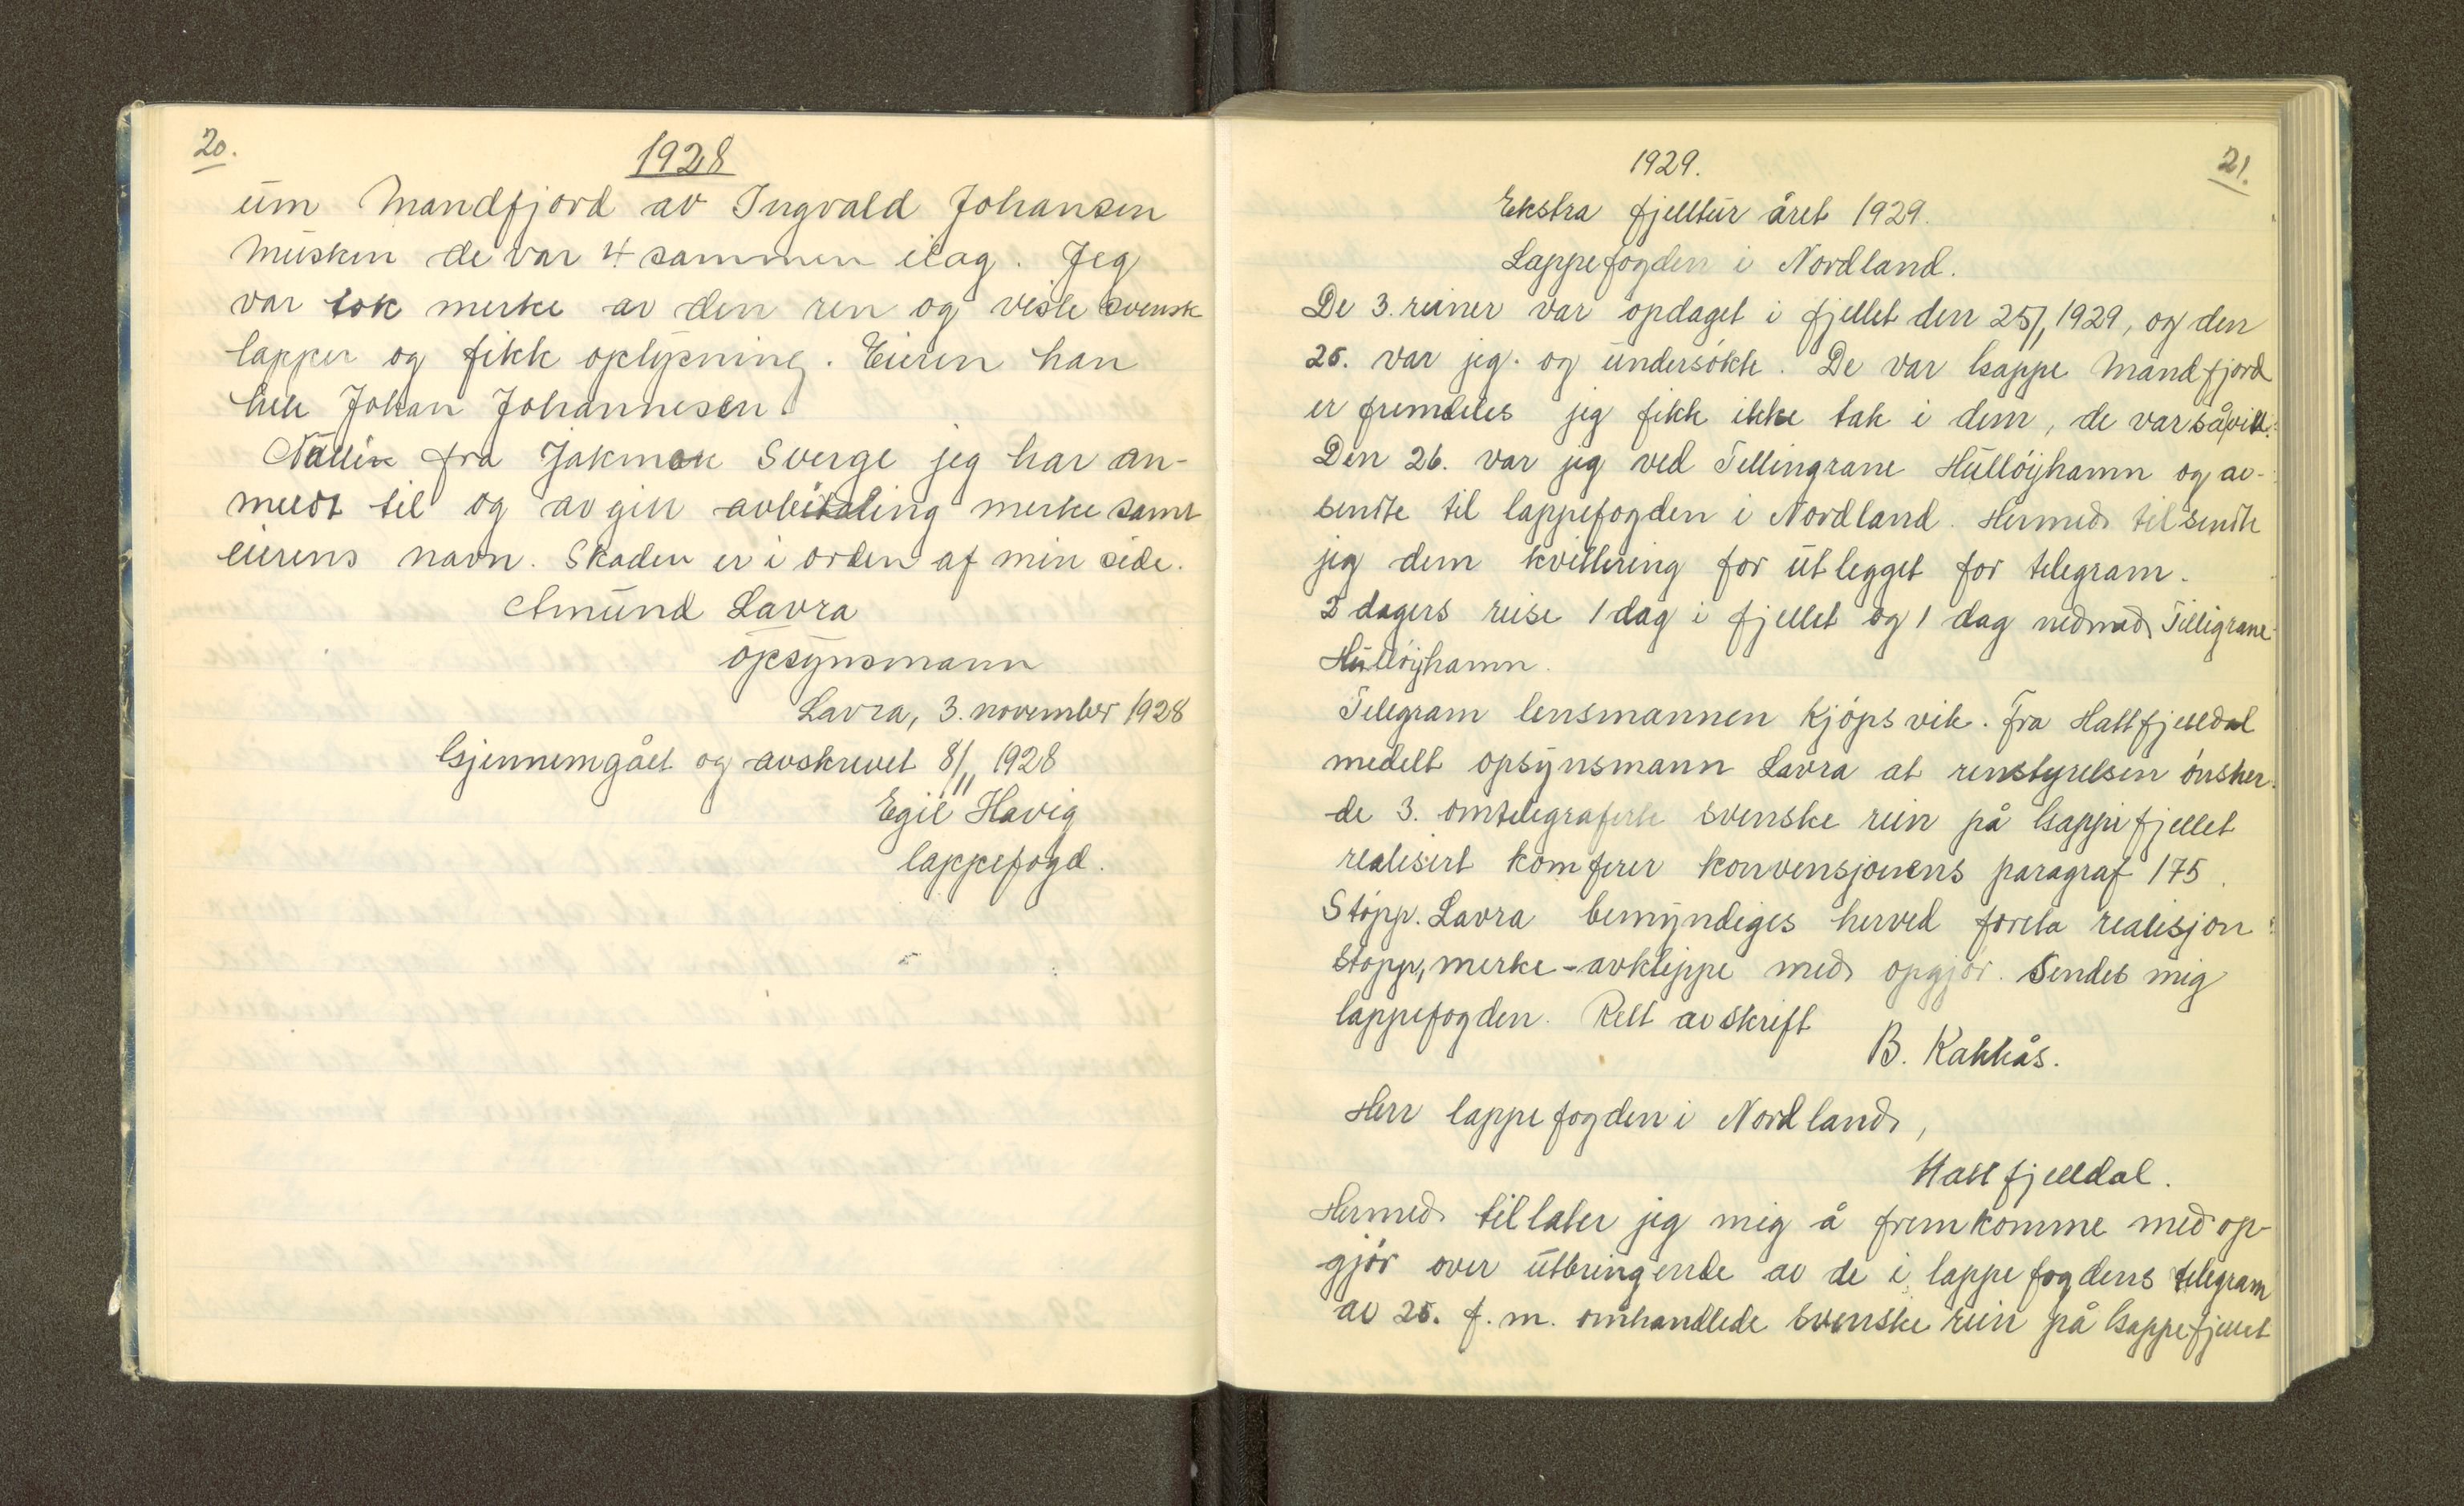 20.
1928
um Mandfjord av Ingvald Johansen
Musken de var 4 sammen ilag. Jeg
var tok merke av den ren og viste svensk
lapper og fikk oplysning. Eieren han
heter Johan Johannesen
Nallik fra Jakmok Sverge jeg har an-
meldt til og avgitt avbetaling merke samt
eierens navn. Skaden er i orden af min side.
Amund Lavra
opsynsmann
Lavra, 3. november 1928
Gjennemgået og avskrevet 8/11 1928
Egil Havig
lappefogd.
21.
1929.
Ekstra fjelltur året 1929.
Lappefogden i Nordland.
De 3. reiner var opdaget i fjellet den 25/1 1929, og den
25. var jeg og undersøkte. De var Gappe Mandfjord
er fremdeles jeg fikk ikke tak i dem, de var så vill.
Den 26. var jeg ved Tellingrane Hulløyhamn og av-
sendte til lappefogden i Nordland. Hermed tilsendte
jeg dem kvittering for utlegget for telegram.
2 dagers reise 1 dag i fjellet og 1 dag nedmed Tilligrane
Hulløyhamn.
Telegram lensmannen Kjøpsvik. Fra Hattfjelldal
medelt opsynsmann Lavra at renstyrelsen ønsker
de 3. omtelegraferte svenske rein på Gappefjellet
realisert komferer konvensjonens paragraf 175.
Stopp. Lavra bemyndiges herved foreta realisjon
Stopp, merke-avklippe med opgjør. Sendes mig
lappefogden. Rett avskrift
B. Kakkås.
Herr lappefogden i Nordland,
Hattfjelldal.
Hermed tillater jeg mig å fremkomme med op-
gjør over utbringende av de i lappefogdens telegram
av 25. f.m. omhandlede svenske rein på Gappefjellet